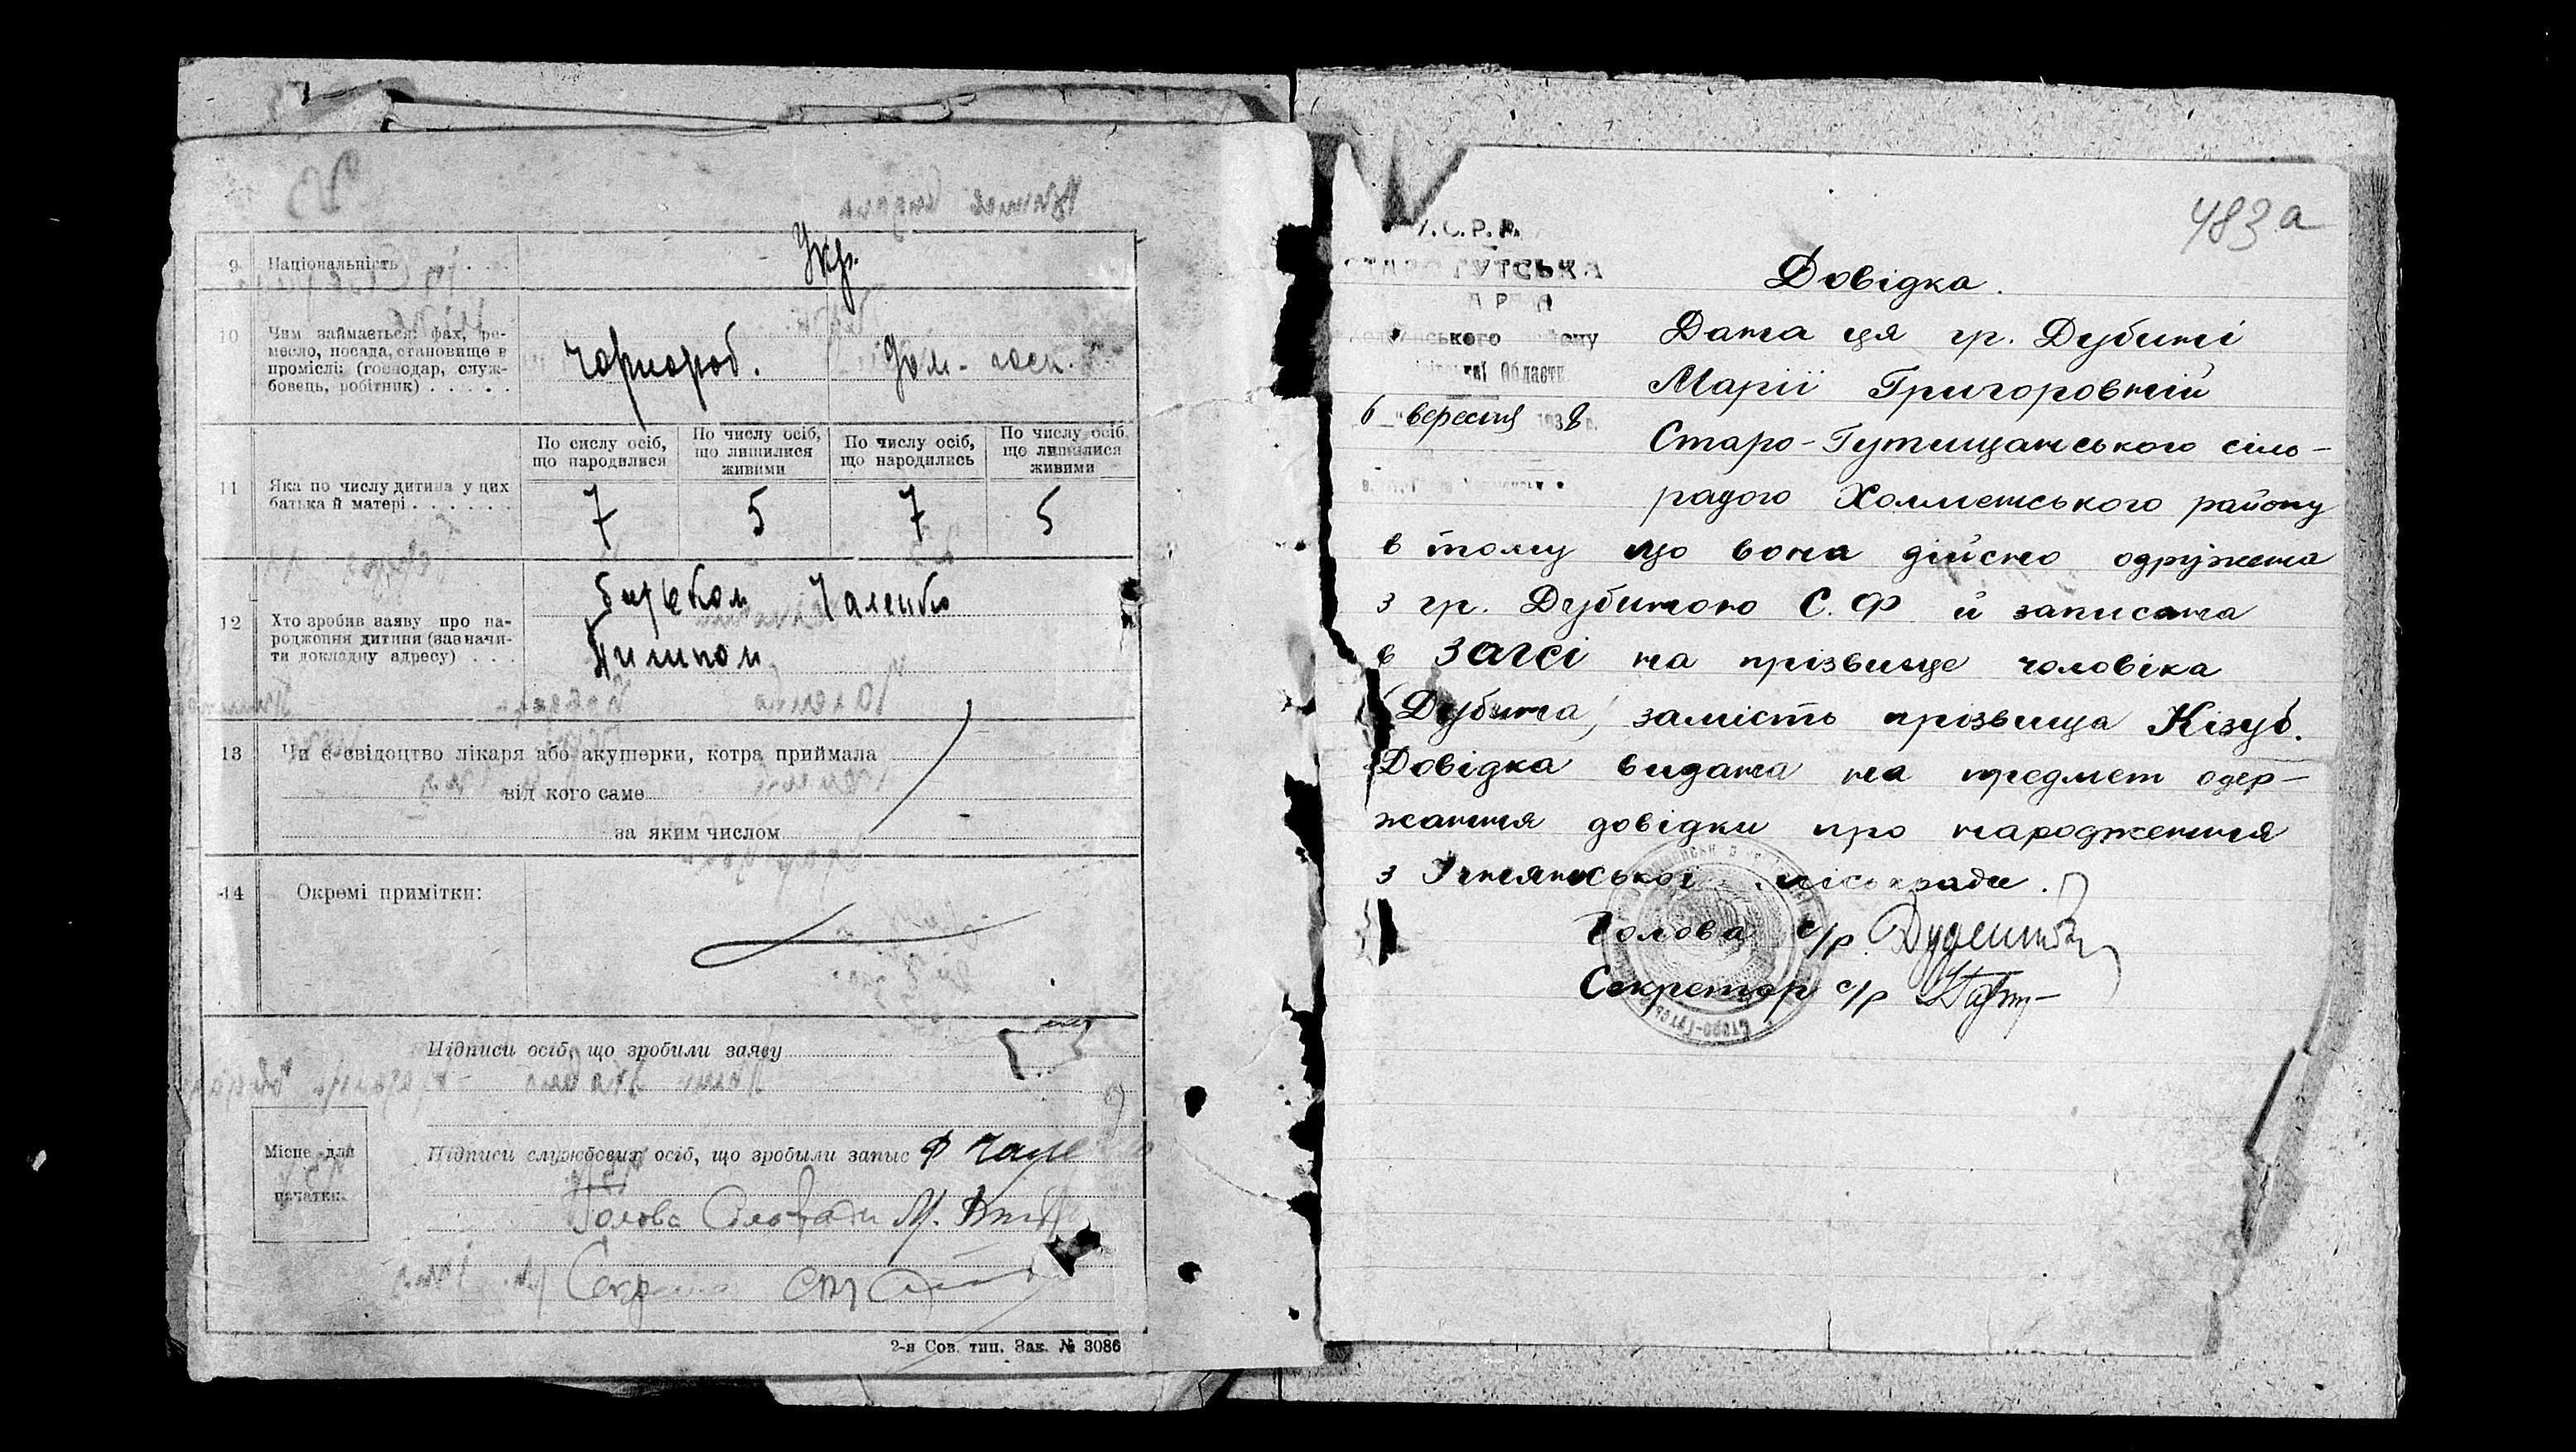 9 Національність
Укр.
10 Чим займається: фах, ре-
месло, посада, становище в
промислі: (господар, служ-
бовець, робітник)
чорнороб.
дом. госп.
По сислу осіб, що народилися
По числу осіб, що лишилися живими
По числу осіб, що народились
По числу осіб, що лишилися живими
11 Яка по числу дитина у цих
батька й матері
7 5 7 5
12 Хто зробив заяву про на-
родження дитини (зазначи-
ти докладну адресу)
батьком
Пилипом
13 Чи є свідоцтво лікаря або акушерки, котра приймала
від кого саме
за яким числом
14 Окремі примітки:
Підписи осіб, що зробили заяву
Місце для
печатки
Підписи службових осіб, що зробыли запыс
Голова Сільради М.
2-я Сов. тип. Зак. № 3086
483а
У.С.Р.Р.
СТАРО ГУТСЬКА
району
Области
6 вересня 1938 р.
Довідка.
Дана ця гр. Дубині
Марії Григоровній
Старо-Гутищанського сіль-
радою Холменського району
в тому що вона дійсно одружена
з гр. Дубиною С. Ф й записана
в Загсі на прізвище чоловіка
(Дубина) замість прізвища Кізуб.
Довідка видана на предмет одер-
жання довідки про народження
з Ічнянської міськради.
Голова с/р
Секретар с/р